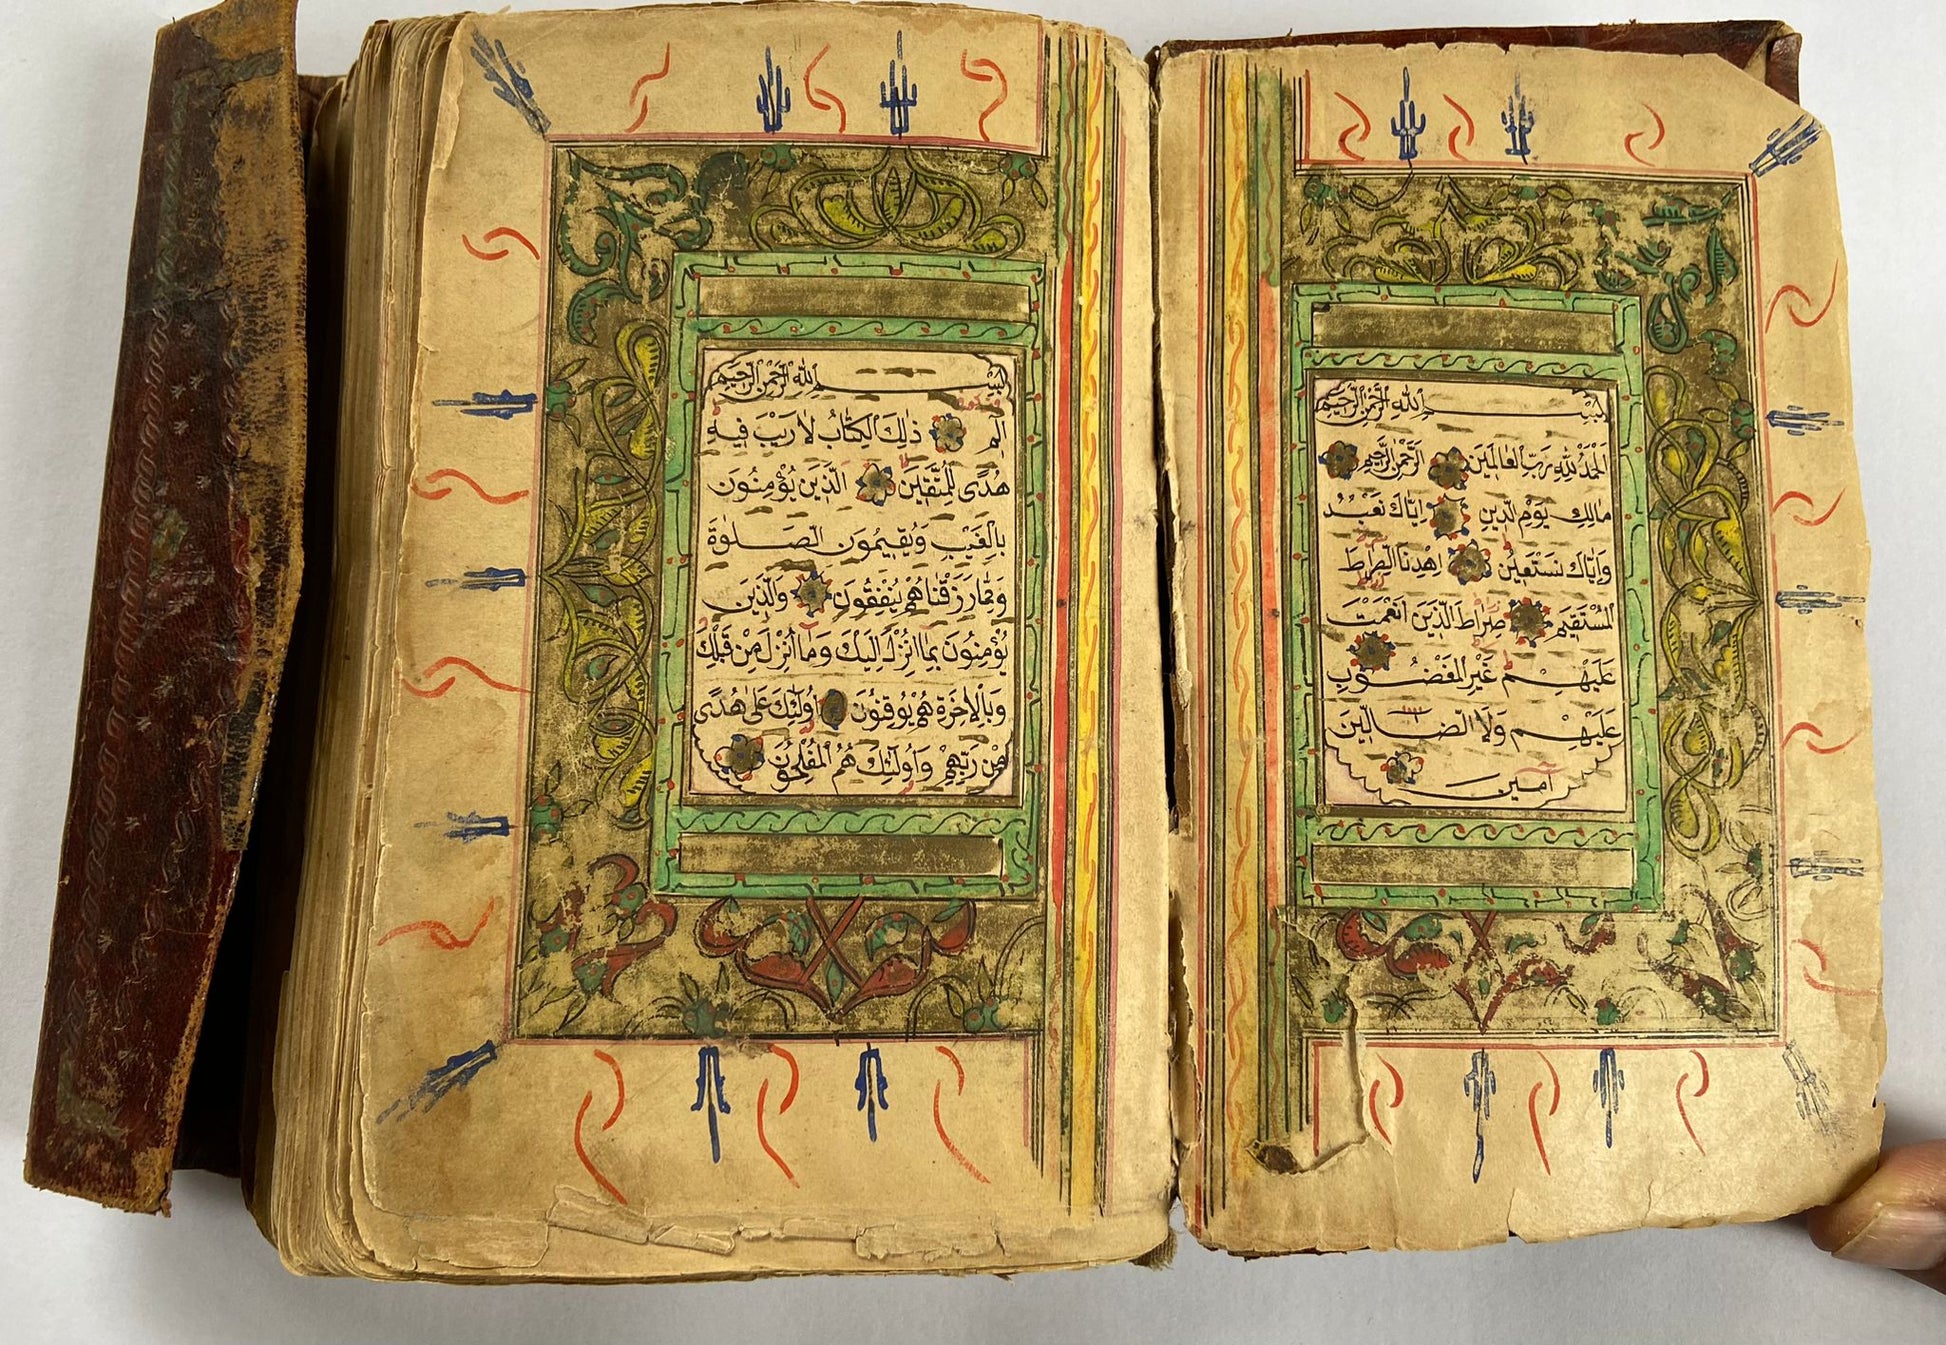 بِسْمِ اللهِ الرَّحْمٰنِ الرَّحِيمِ
اَلْحَمْدُ لِلّٰهِ رَبِّ الْعَالَمِينَ اَلرَّحْمٰنِ الرَّحِيمِ
مَالِكِ يَوْمِ الدِّينِ اِيَّاكَ نَعْبُدُ
وَاِيَّاكَ نَسْتَعِينُ اِهْدِنَا الصِّرَاطَ
الْمُسْتَقِيمَ صِرَاطَ الَّذِينَ اَنْعَمْتَ
عَلَيْهِمْ غَيْرِ الْمَغْضُوبِ
عَلَيْهِمْ وَلَا الضَّالِّينَ
آمين
بِسْمِ اللهِ الرَّحْمٰنِ الرَّحِيمِ
الٓمٓ ذٰلِكَ الْكِتَابُ لَا رَيْبَ فِيهِ
هُدًى لِلْمُتَّقِينَ اَلَّذِينَ يُؤْمِنُونَ
بِالْغَيْبِ وَيُقِيمُونَ الصَّلٰوةَ
وَمِمَّا رَزَقْنَاهُمْ يُنْفِقُونَ وَالَّذِينَ
يُؤْمِنُونَ بِمَا اُنْزِلَ اِلَيْكَ وَمَا اُنْزِلَ مِنْ قَبْلِكَ
وَبِالْاٰخِرَةِ هُمْ يُوقِنُونَ اُولٰئِكَ عَلٰى هُدًى
مِنْ رَبِّهِمْ وَاُولٰئِكَ هُمُ الْمُفْلِحُونَ